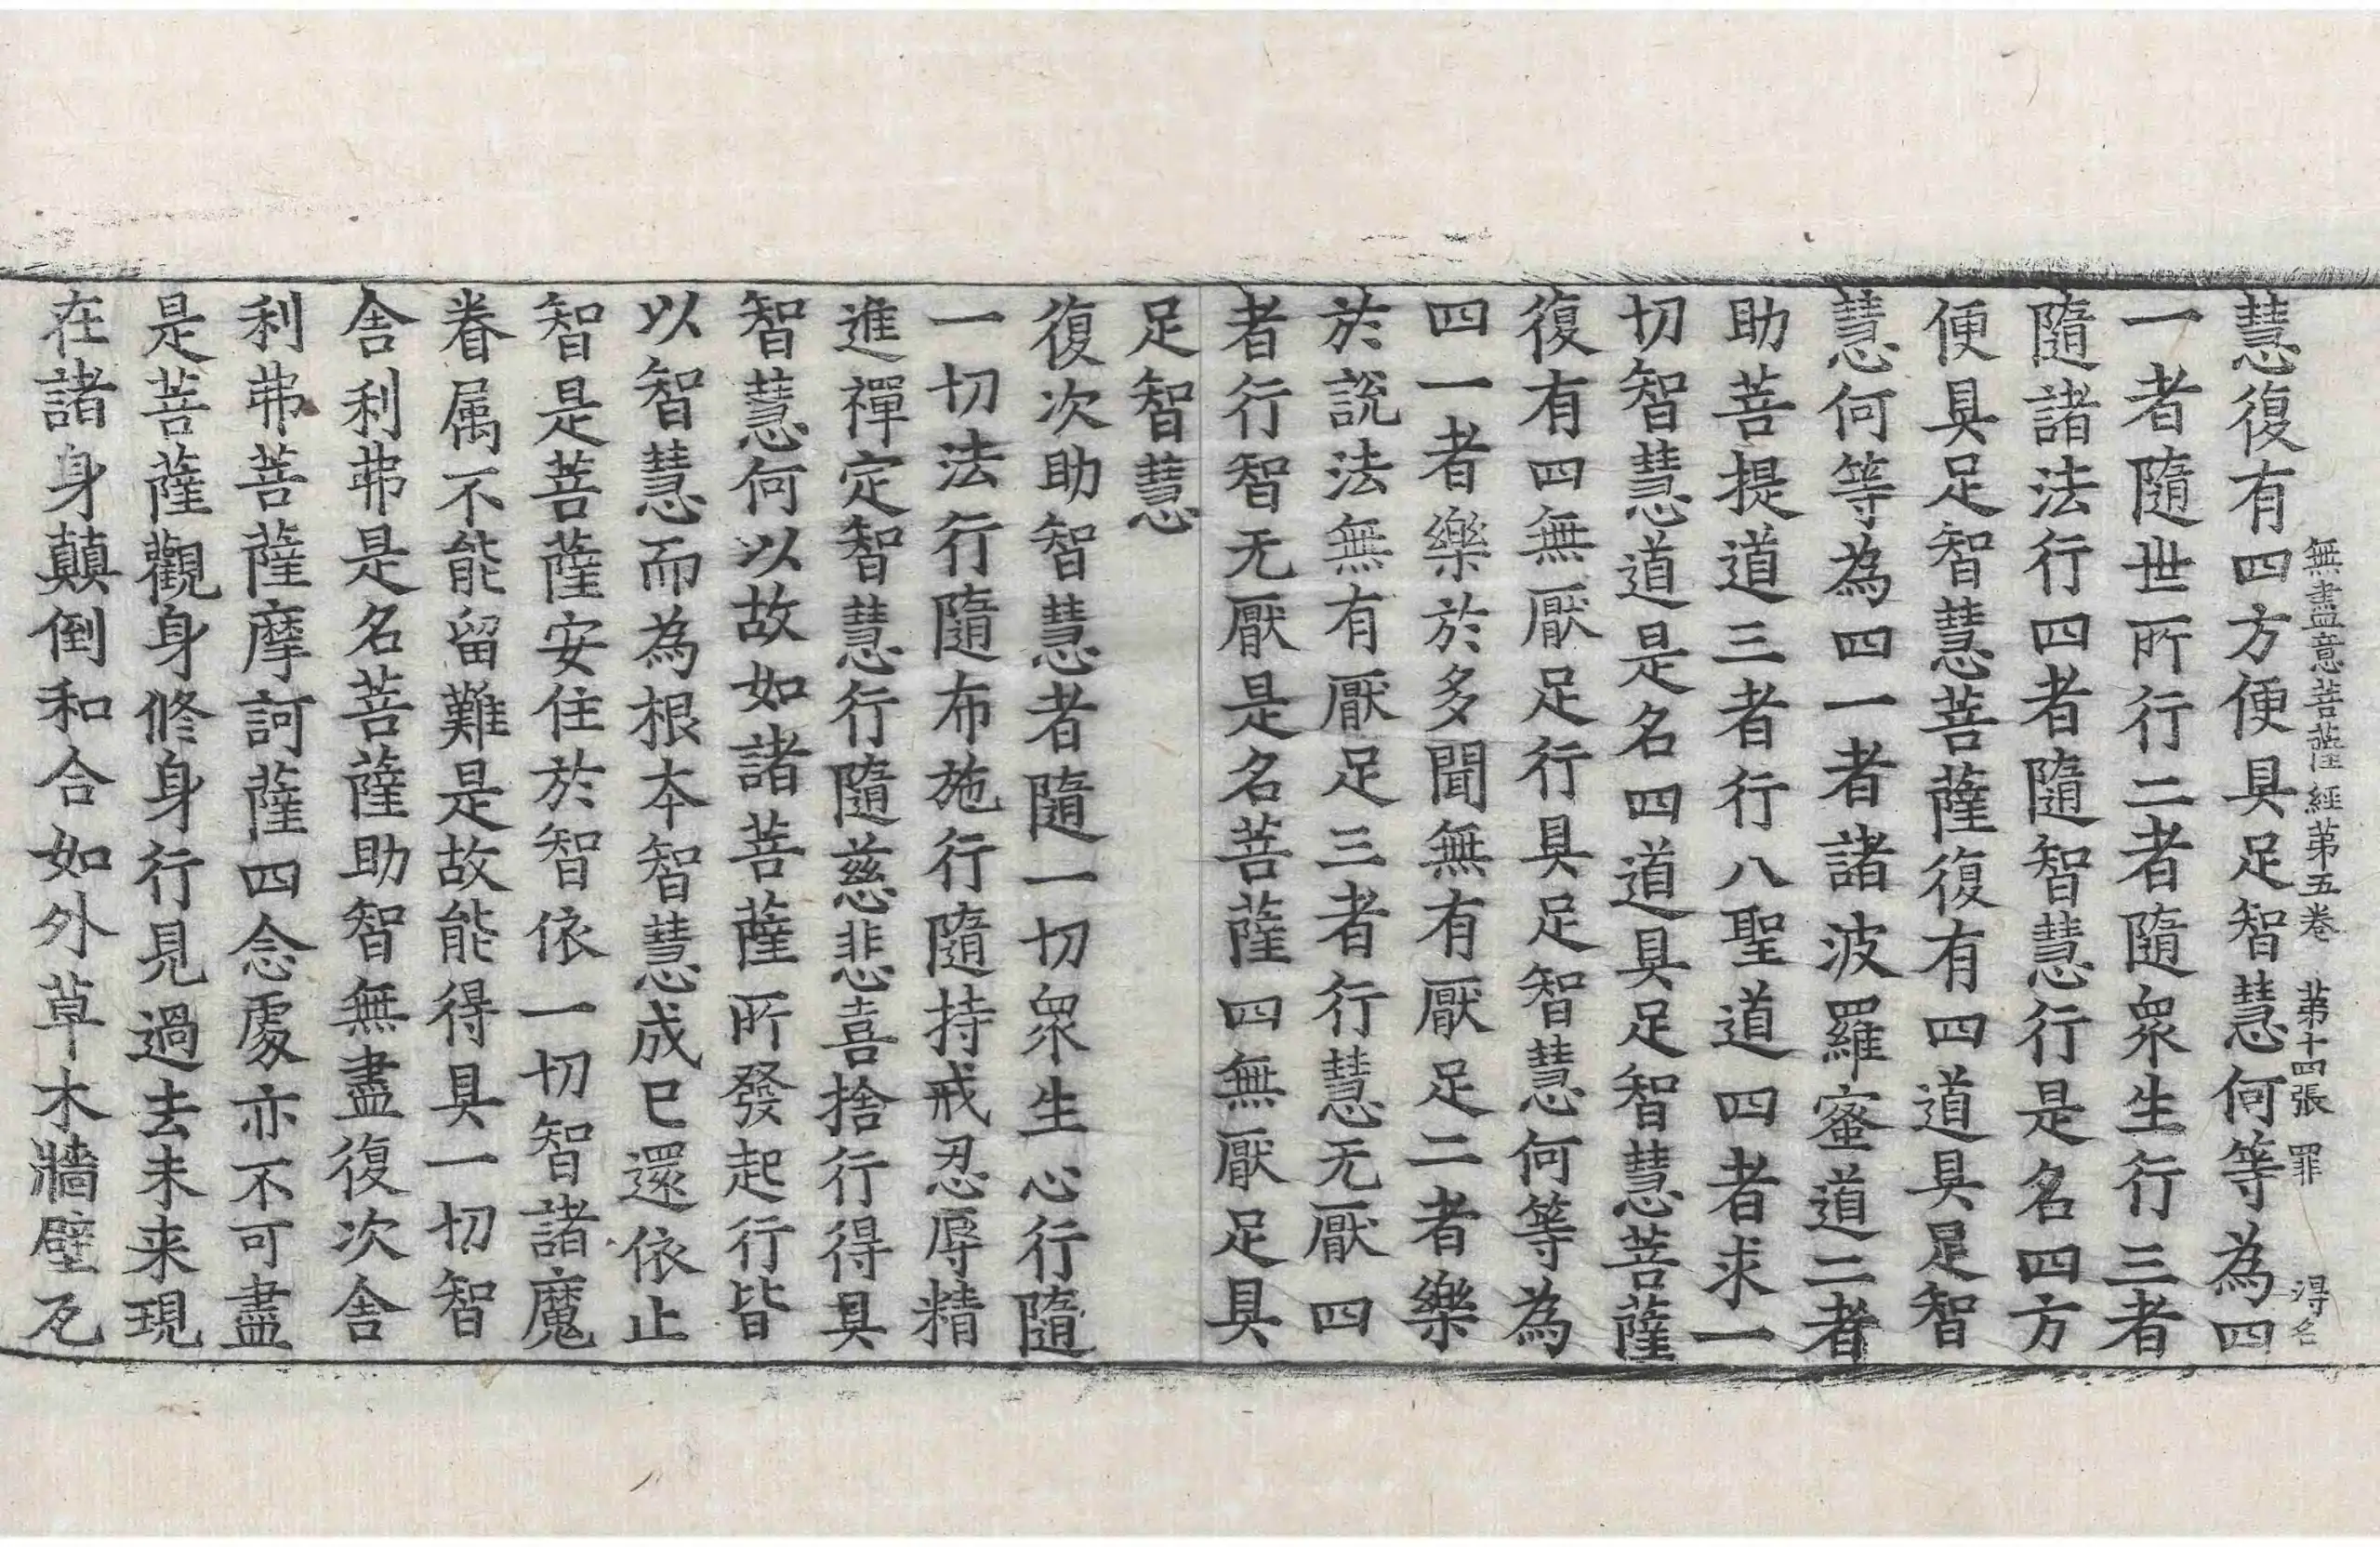 無盡意菩薩經苐五卷 苐十四張 罪 淂名
慧復有四方便具足智慧何等為四
一者隨世所行二者隨衆生行三者
隨諸法行四者隨智慧行是名四方
便具足智慧菩薩復有四道具足智
慧何等為四一者諸波羅蜜道二者
助菩提道三者行八聖道四者求一
切智慧道是名四道具足智慧菩薩
復有四無厭足行具足智慧何等為
四一者樂於多聞無有厭足二者樂
於說法無有厭足三者行慧无厭四
者行智无厭是名菩薩四無厭足具
足智慧
復次助智慧者隨一切衆生心行隨
一切法行隨布施行隨持戒忍辱精
進禪定智慧行隨慈悲喜捨行得具
智慧何以故如諸菩薩所發起行皆
以智慧而為根本智慧成已還依止
智是菩薩安住於智依一切智諸魔
眷属不能留難是故能得具一切智
舍利弗是名菩薩助智無盡復次舍
利弗菩薩摩訶薩四念處亦不可盡
是菩薩觀身修身行見過去未来現
在諸身顛倒和合如外草木牆壁瓦